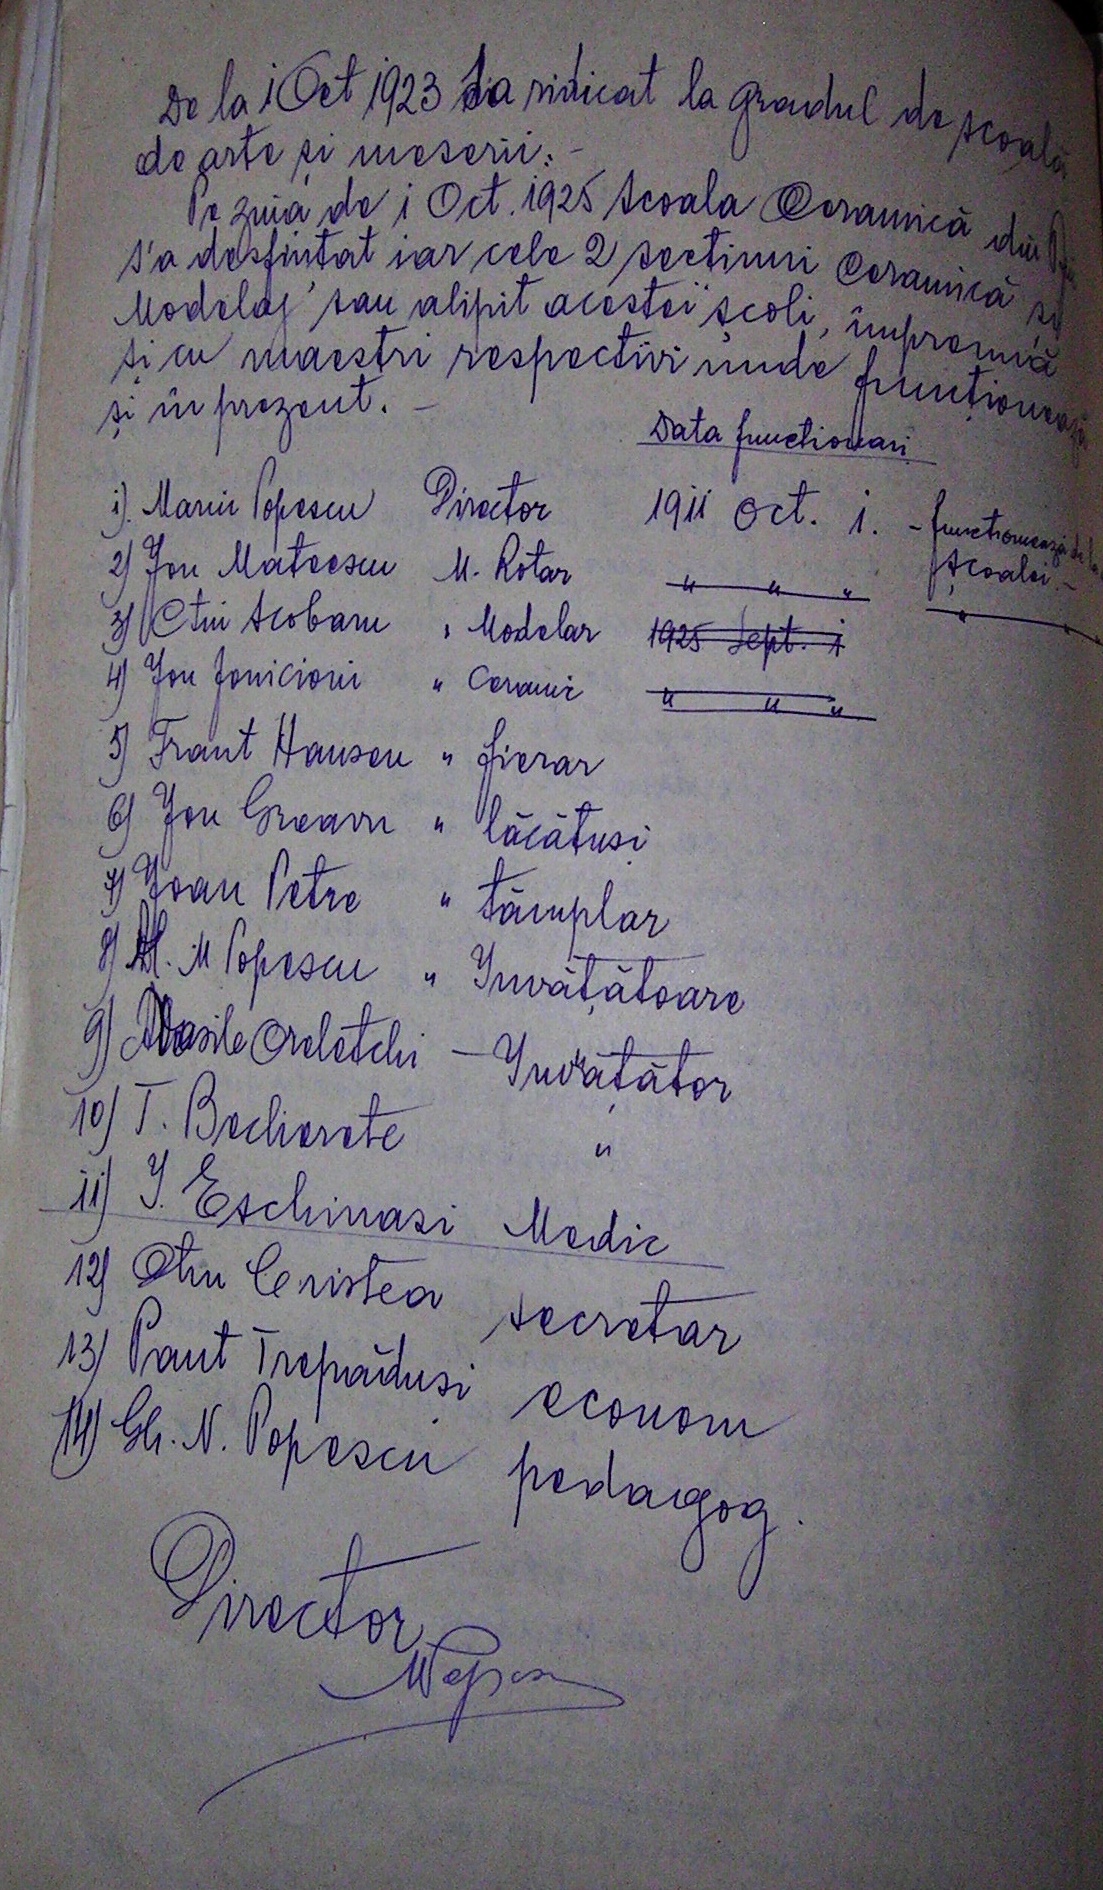 De la 1 Oct 1923 s'a ridicat la gradul de scoală
de arte și meserii. -
Pe ziua de 1 Oct. 1925 scoala Ceramică din
s'a desfintat iar cele 2 sectiuni Ceramică și
Modelaj sau alipit acestei școli, împreună
și cu maestri respectivi unde funcționează
și în prezent. -
Data functionari
1). Marin Popescu Director 1911 Oct. 1. - functionează de la
2) Ion Mateescu M. Rotar " " " școalei. -
3) Ctin Scobanu " Modelar 1925 Sept. 1 " "
4) Ion Ionicioni " Ceramic " " "
5) Frant Hausen " fierar
6) Ion Greavu " lăcătusi
7) Ioan Petre " tâmplar
8) M. M Popescu " Invățătoare
9) Vasile Oreletchi - Invățător
10) T. Becherete "
11) I. Eschinasi Medic
12) Ctin Cristea secretar
13) Pant Trepădusi econom
14) Gh. N. Popescu pedagog.
Director
MPopescu